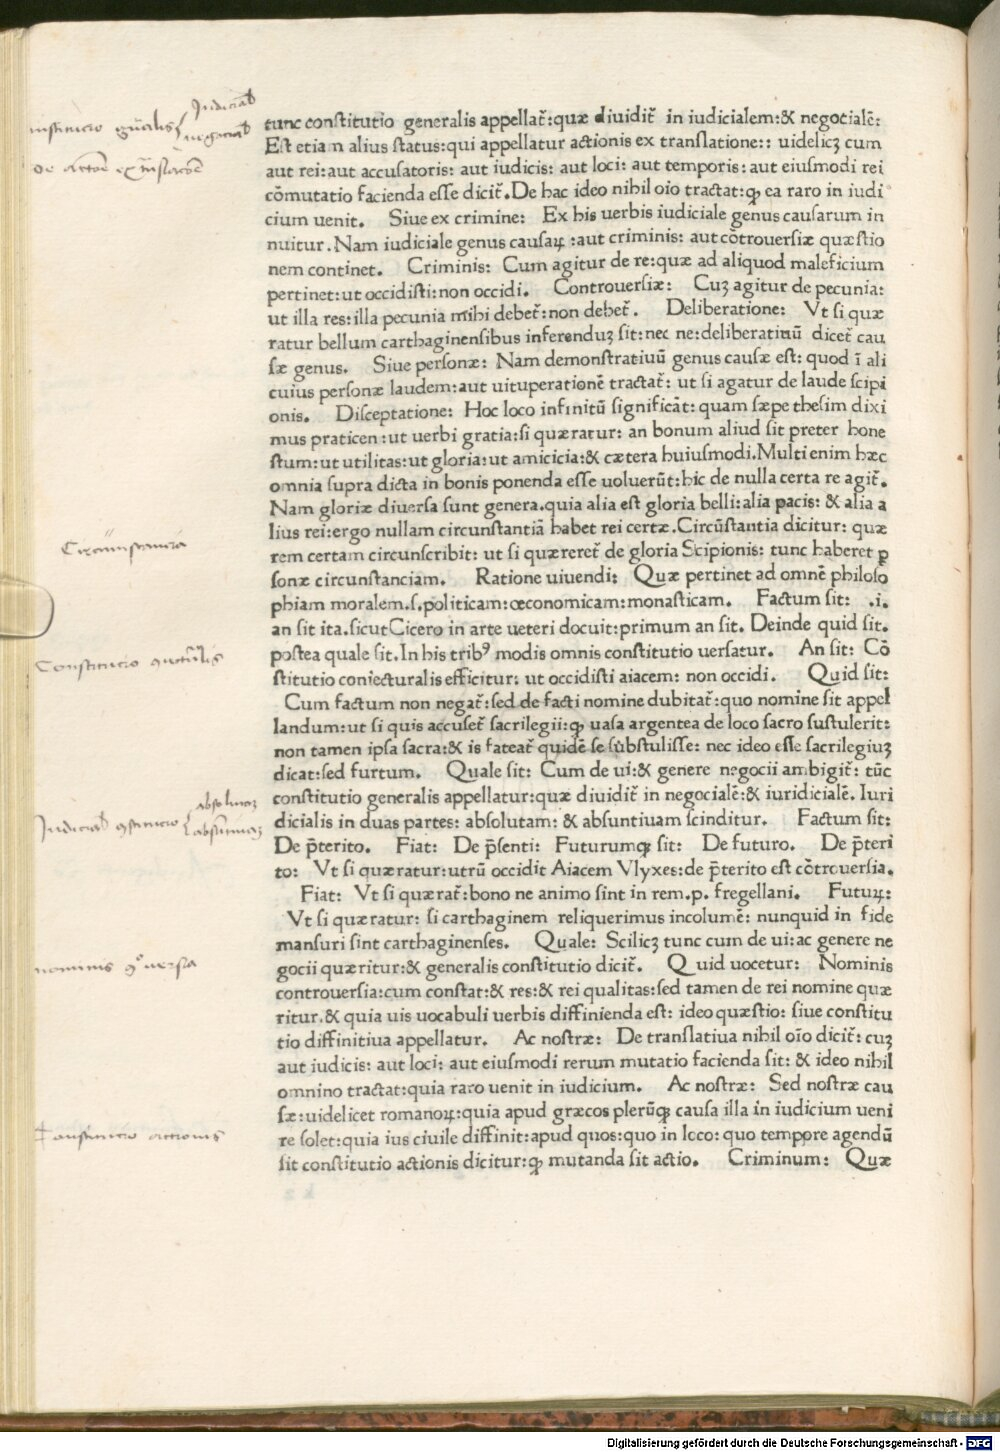 tunc constitutio generalis appellat᷑:quæ diuidit᷑ in iudicialem:& negotialē:
Est etiam alius status:qui appellatur actionis ex translatione:: uidelicꝫ cum
aut rei:aut accusatoris: aut iudicis: aut loci: aut temporis: aut eiusmodi rei
cōmutatio facienda esse dicit᷑. De hac ideo nihil oīo tractat:ꝙ ea raro in iudi
cium uenit. Siue ex crimine: Ex his uerbis iudiciale genus causarum in
nuitur. Nam iudiciale genus causaꝝ :aut criminis: aut cōtrouersiæ quæstio
nem continet. Criminis: Cum agitur de re:quæ ad aliquod maleficium
pertinet:ut occidisti:non occidi. Controuersiæ: Cuꝫ agitur de pecunia:
ut illa res:illa pecunia mihi debet᷑:non debet᷑. Deliberatione: Vt si quæ
ratur bellum carthaginensibus inferenduꝫ sit:nec ne:deliberatiuū dicet᷑ cau
sæ genus. Siue personæ: Nam demonstratiuū genus causæ est: quod ī ali
cuius personæ laudem:aut uituperationē tractat᷑: ut si agatur de laude scipi
onis. Disceptatione: Hoc loco infinitū significāt: quam sæpe thesim dixi
mus praticen:ut uerbi gratia:si quæratur: an bonum aliud sit preter hone
stum:ut utilitas:ut gloria:ut amicicia:& cætera huiusmodi.Multi enim hæc
omnia supra dicta in bonis ponenda esse uoluerūt:hic de nulla certa re agit᷑.
Nam gloriæ diuersa sunt genera.quia alia est gloria belli:alia pacis: & alia a
lius rei:ergo nullam circunstantiā habet rei certæ.Circūstantia dicitur: quæ
rem certam circunscribit: ut si quæreret᷑ de gloria Scipionis: tunc haberet ꝑ
sonæ circunstanciam. Ratione uiuendi: Quæ pertinet ad omnē philoso
phiam moralem.s.politicam:œconomicam:monasticam. Factum sit: .i.
an sit ita.sicut Cicero in arte ueteri docuit:primum an sit. Deinde quid sit.
postea quale sit. In his tribꝰ modis omnis constitutio uersatur. An sit: Cō
stitutio coniecturalis efficitur: ut occidisti aiacem: non occidi. Quid sit:
Cum factum non negat᷑:sed de facti nomine dubitat᷑:quo nomine sit appel
landum:ut si quis accuset᷑ sacrilegii:ꝙ uasa argentea de loco sacro sustulerit:
non tamen ipsa sacra:& is fateat᷑ quidē se substulisse: nec ideo esse sacrilegiuꝫ
dicat:sed furtum. Quale sit: Cum de ui:& genere negocii ambigit᷑: tūc
constitutio generalis appellatur:quæ diuidit᷑ in negocialē:& iuridicialē. Iuri
dicialis in duas partes: absolutam: & absuntiuam scinditur. Factum sit:
De p̄terito. Fiat: De p̄senti: Futurumꝙ sit: De futuro. De p̄teri
to: Vt si quæratur:utrū occidit Aiacem Vlyxes:de p̄terito est cōtrouersia.
Fiat: Vt si quærat᷑:bono ne animo sint in rem.p. fregellani. Futuꝝ:
Vt si quæratur: si carthaginem reliquerimus incolumē: nunquid in fide
mansuri sint carthaginenses. Quale: Scilicꝫ tunc cum de ui:ac genere ne
gocii quæritur:& generalis constitutio dicit᷑. Quid uocetur: Nominis
controuersia:cum constat:& res:& rei qualitas:sed tamen de rei nomine quæ
ritur.& quia uis uocabuli uerbis diffinienda est: ideo quæstio: siue constitu
tio diffinitiua appellatur. Ac nostræ: De translatiua nihil oīo dicit᷑: cuꝫ
aut iudicis: aut loci: aut eiusmodi rerum mutatio facienda sit: & ideo nihil
omnino tractat:quia raro uenit in iudicium. Ac nostræ: Sed nostræ cau
sæ:uidelicet romanoꝝ:quia apud græcos plerūꝙ causa illa in iudicium ueni
re solet:quia ius ciuile diffinit:apud quos:quo in loco: quo tempore agendū
sit constitutio actionis dicitur:ꝙ mutanda sit actio. Criminum: Quæ
Circūnstancia
nominis ꝯ°uersia
Digitalisierung gefördert durch die Deutsche Forschungsgemeinschaft - DFG